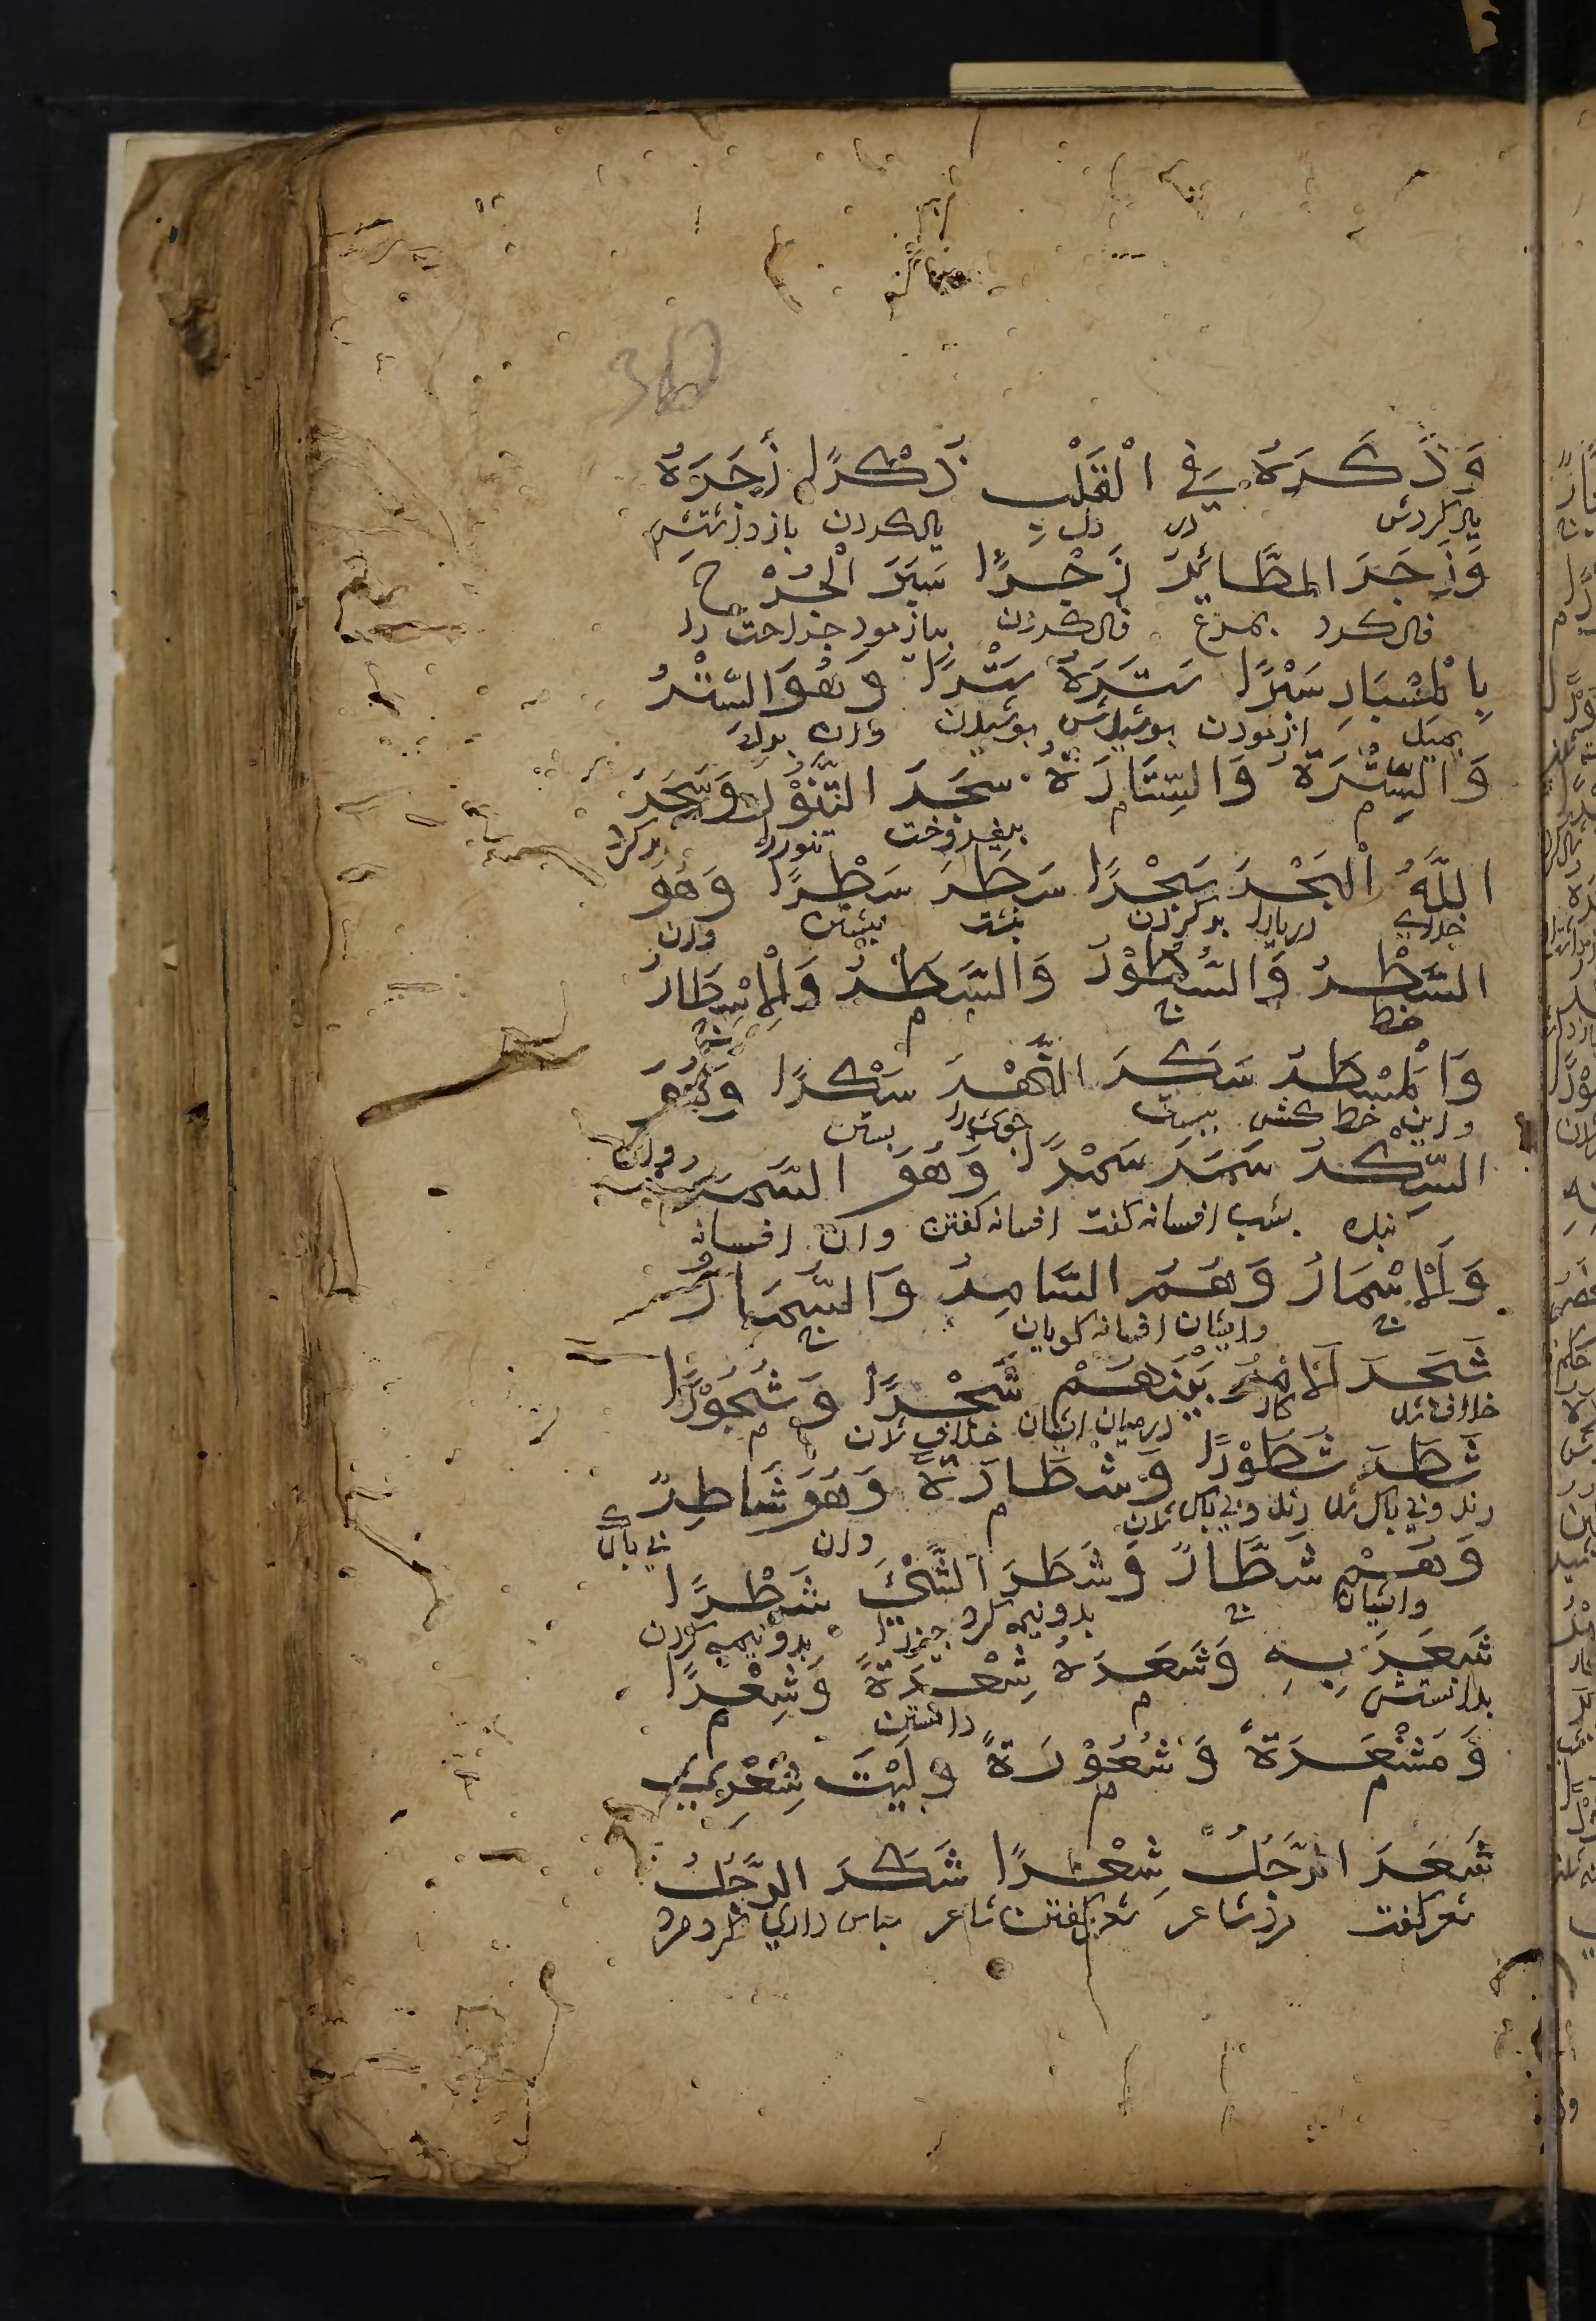 وَذَكَرَهُ فِي الْقَلْبِ ذِكْرًا زَجَرَهُ
یاد کردش در دل یاد کردن باز داشتش
وَزَجَرَ الطَّائِرَ زَجْرًا سَبَرَ الْجُرْحَ
فال کرد بمرغ فال کردن بیازمود جراحت را
بِالْمِسْبَارِ سَبْرًا سَتَرَهُ سَتْرًا وَهُوَ السِّتْرُ
بمیل ازمودن بوشیدش بوشیدن وان برده
وَالسُّتْرَةُ وَالسِّتَارَةُ سَجَرَ التَّنُّوْرَ وَسَجَرَ
م م بیفروخت تنور را بر کرد
اللَّهُ الْبَحْرَ سَجْرًا سَطَرَ سَطْرًا وَهُوَ
خدای دریا را بر کردن نبشت نبشتن وان
السَّطْرُ وَالسُّطُوْرُ وَالسَّطَرُ وَالْاَسْطَارُ
خط ج م
وَالْمِسْطَرُ سَكَرَ النَّهْرَ سَكْرًا وَهُوَ
واین خط کش ببست جوی را بستن وان
السِّكْرُ سَمَرَ سَمْرًا وَهُوَ السَّمَرُ
بشب افسانه کفت افسانه کفتن وان افسانه
وَالْاَسْمَارُ وَهُمُ السَّامِرُ وَالسُّمَّارُ
ج وایشان افسانه کویان ج
شَجَرَ الْاَمْرُ بَيْنَهُمْ شَجْرًا وَشُجُوْرًا
خلاف شد کار در میان ایشان خلاف شدن م
شَطَرَ شُطُوْرًا وَشَطَارَةً وَهُوَ شَاطِرٌ
رند وبی باک شد رند وبی باک شدن م وان بی باک
وَهُمْ شُطَّارٌ وَشَطَرَ الشَّيْءَ شَطْرًا
وایشان ج بدو نیمه کرد چیز را بدو نیمه کردن
شَعَرَ بِهِ وَشَعَرَهُ شِعْرَةً وَشِعْرًا
بدانستش م دانستن م
وَمَشْعَرَةً وَشُعُوْرَةً وَلَيْتَ شِعْرِي
م م
شَعَرَ الرَّجُلُ شِعْرًا شَكَرَ الرَّجُلُ
شعر کفت مرد شاعر شعر کفتن شاعر سباس داری کرد مرد